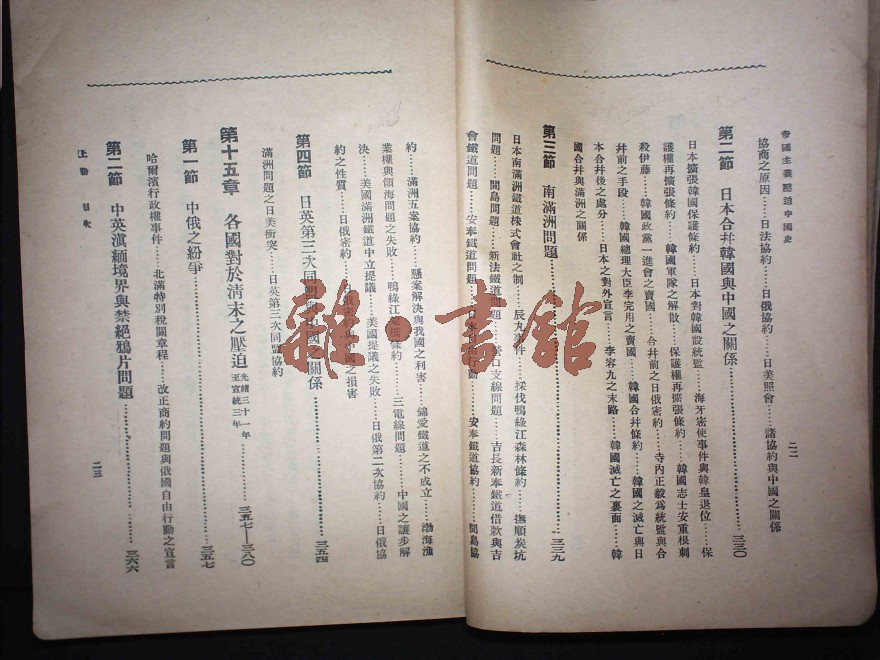 帝國主義壓迫中國史
二二
協商之原因……日法協約……日俄協約……日美照會……諸協約與中國之關係
第二節 日本合幷韓國與中國之關係……三三〇
日本擴張韓國保護條約……日本對韓國設統監……海牙密使事件與韓皇退位……保
護權再擴張條約……韓國軍隊之解散……保護權再擴張條約……韓國志士安重根刺
殺伊藤……韓國政黨一進會之賣國……合幷前之日俄密約……寺內正毅爲統監與合
幷前之手段……韓國總理大臣李完用之賣國……韓國合幷條約……韓國之滅亡與日
本合幷後之處分……日本之對外宣言……李容九之末路……韓國滅亡之裏面……韓
國合幷與滿洲之關係
第三節 南滿洲問題……三三九
日本南滿洲鐵道株式會社之制……辰丸事件……採伐鴨綠江森林條約……撫順炭坑
問題……間島問題……新法鐵道問題……營口支線問題……吉長新奉鐵道借款與吉
會鐵道問題……安奉鐵道問題……日本自由行動……安奉鐵道協約……間島協
約……滿洲五案協約……懸案解決與我國之利害……錦愛鐵道之不成立……渤海漁
業權與領海問題之失敗……鴨綠江架橋條約……三電線問題……中國之讓步解
決……美國滿洲鐵道中立提議……美國提議之失敗……日俄第二次協約……日俄協
約之性質……日俄密約……日俄密約與中國之損害
第四節 日英第三次同盟與中國之關係……三五四
滿洲問題之日美衝突……日英第三次同盟協約
第十五章 各國對於清末之壓迫 光緒三十一年至宣統三年……三五七—三八〇
第一節 中俄之紛爭……三五七
哈爾濱行政權事件……北滿特別稅關章程……改正商約問題與俄國自由行動之宣言
第二節 中英滇緬境界與禁絕鴉片問題……三六六
上卷 目次
二三
雜·書館